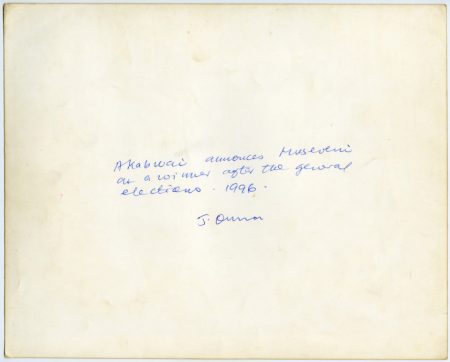 Akabwai annonces Museveni
as a winner after the general
elections. 1996.
J. Ouma